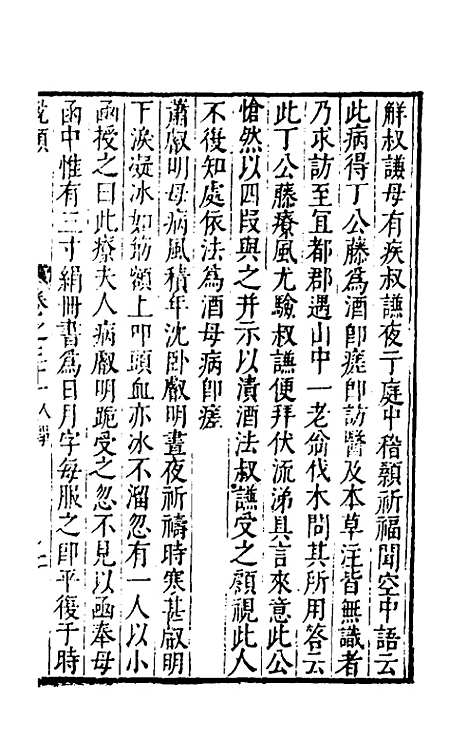 解叔謙母有疾叔謙夜于庭中稽顙祈福聞空中語云
此病得丁公藤爲酒卽瘥卽訪醫及本草注皆無識者
乃求訪至宜都郡遇山中一老翁伐木問其所用答云
此丁公藤療風尤驗叔謙便拜伏流涕具言來意此公
愴然以四段與之并示以漬酒法叔謙受之顧視此人
不復知處依法爲酒母病卽瘥
蕭叡明母病風積年沈卧叡明晝夜祈禱時寒甚叡明
下淚凝冰如筯額上叩頭血亦冰不溜忽有一人以小
函授之曰此療夫人病叡明跪受之忽不見以函奉母
函中惟有三寸絹冊書爲日月字每服之卽平復于時
說類
卷之